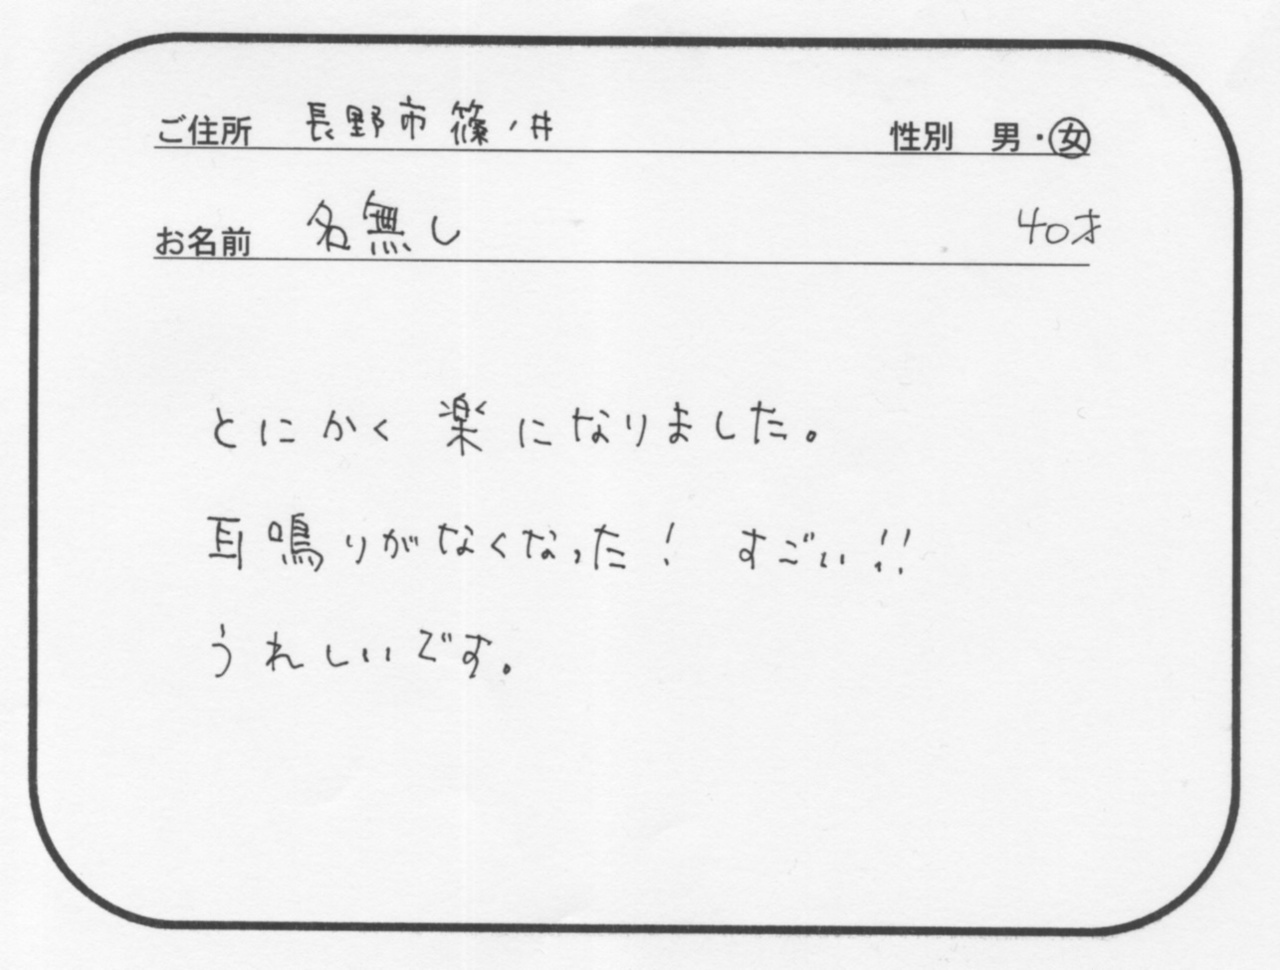 ご住所 長野市篠ノ井 性別 男・女
お名前 名無し 40才
とにかく楽になりました。
耳鳴りがなくなった! すごい!!
うれしいです。